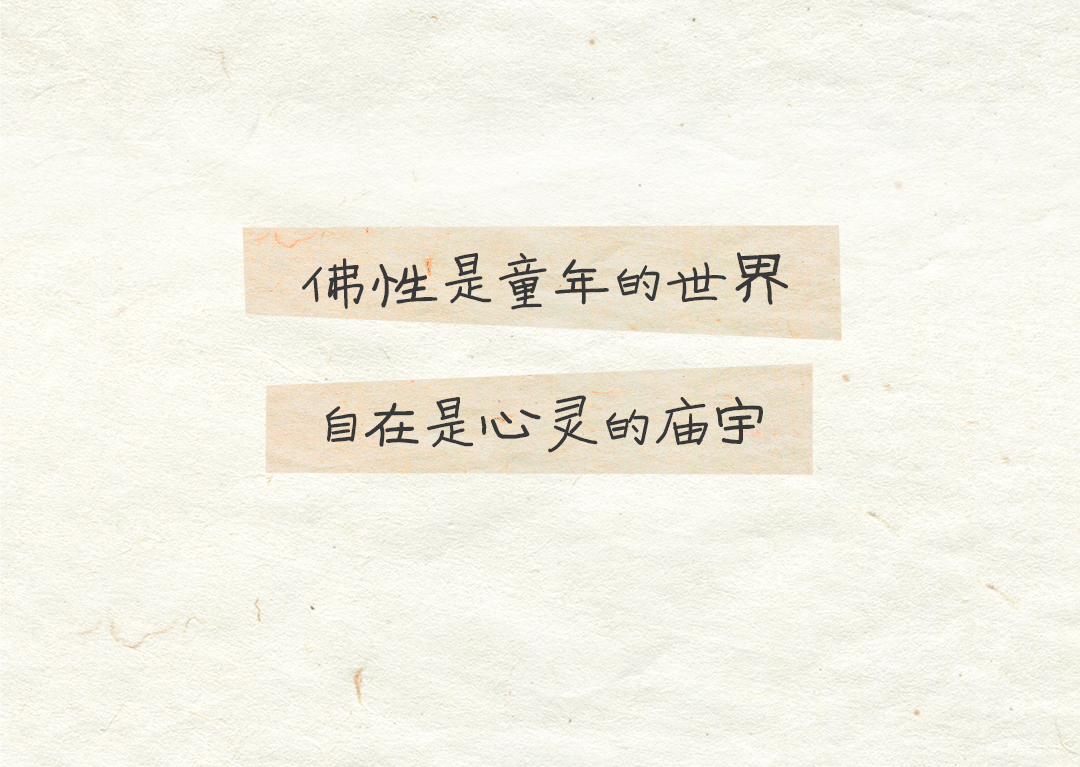 佛性是童年的世界
自在是心灵的庙宇